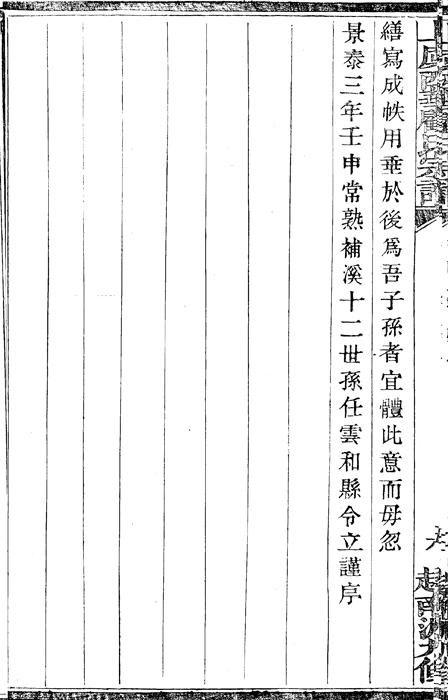 繕寫成帙用垂於後爲吾子孫者宜體此意而毋忽
景泰三年壬申常熟補溪十二世孫任雲和縣令立謹序